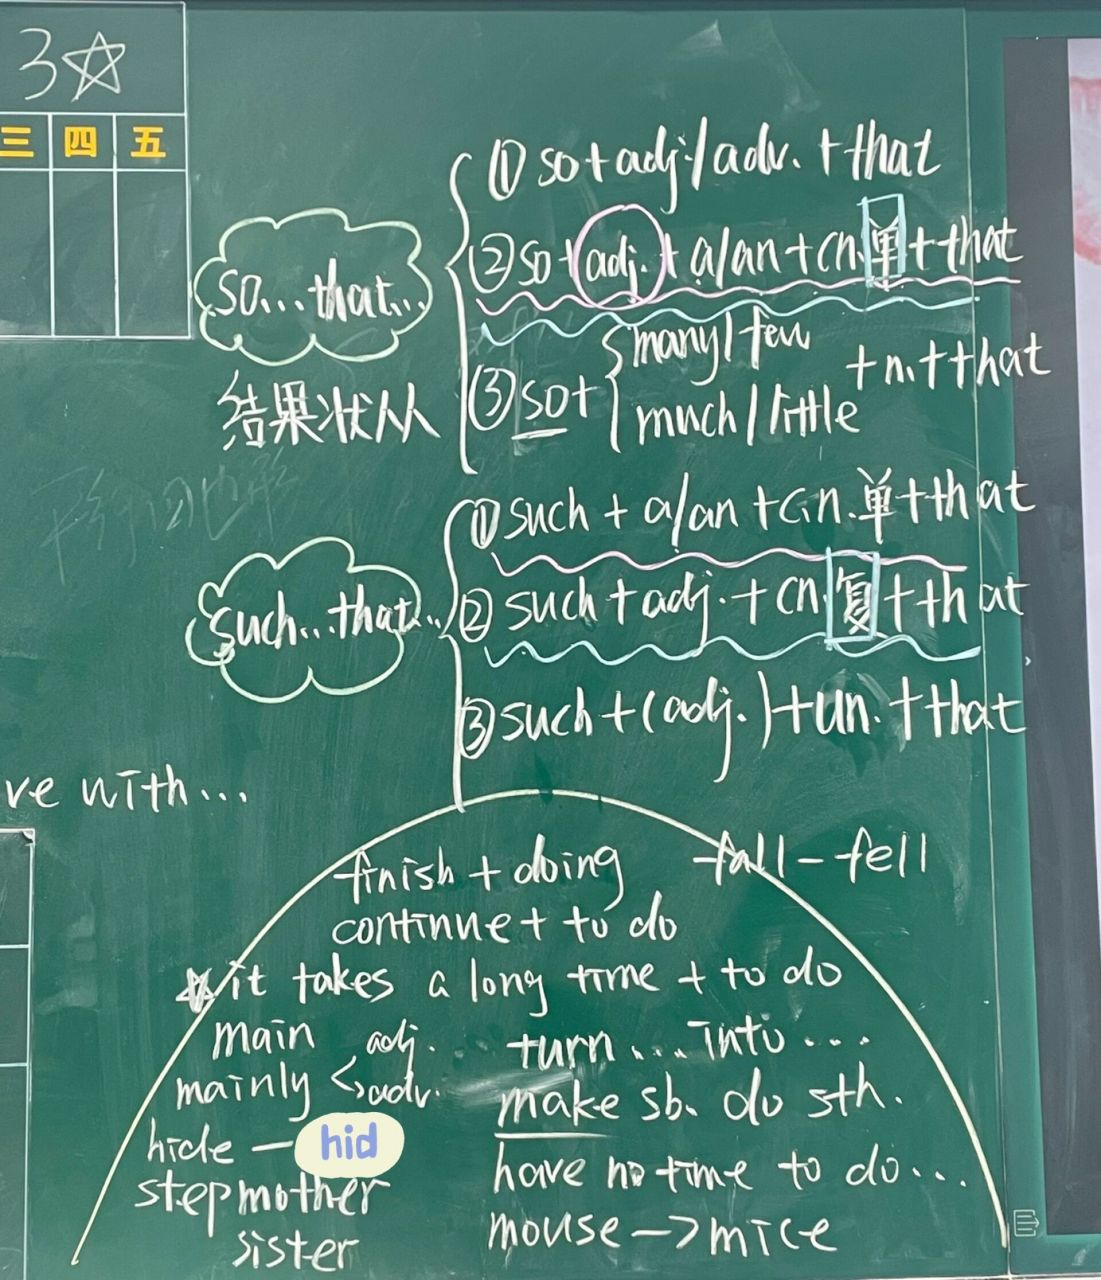 3☆
三 四 五
so...that...
结果状从
①so+adj./adv.+that
②so+adj.+a/an+cn.单+that
③so+ many/few
much/little +n.+that
such...that...
①such+a/an+cn.单+that
②such+adj.+cn.复+that
③such+(adj.)+un.+that
ve with...
finish+doing fall-fell
continue+to do
☆it takes a long time + to do
main adj. turn...into...
mainly adv. make sb. do sth.
hide—hid have no time to do...
stepmother mouse->mice
sister